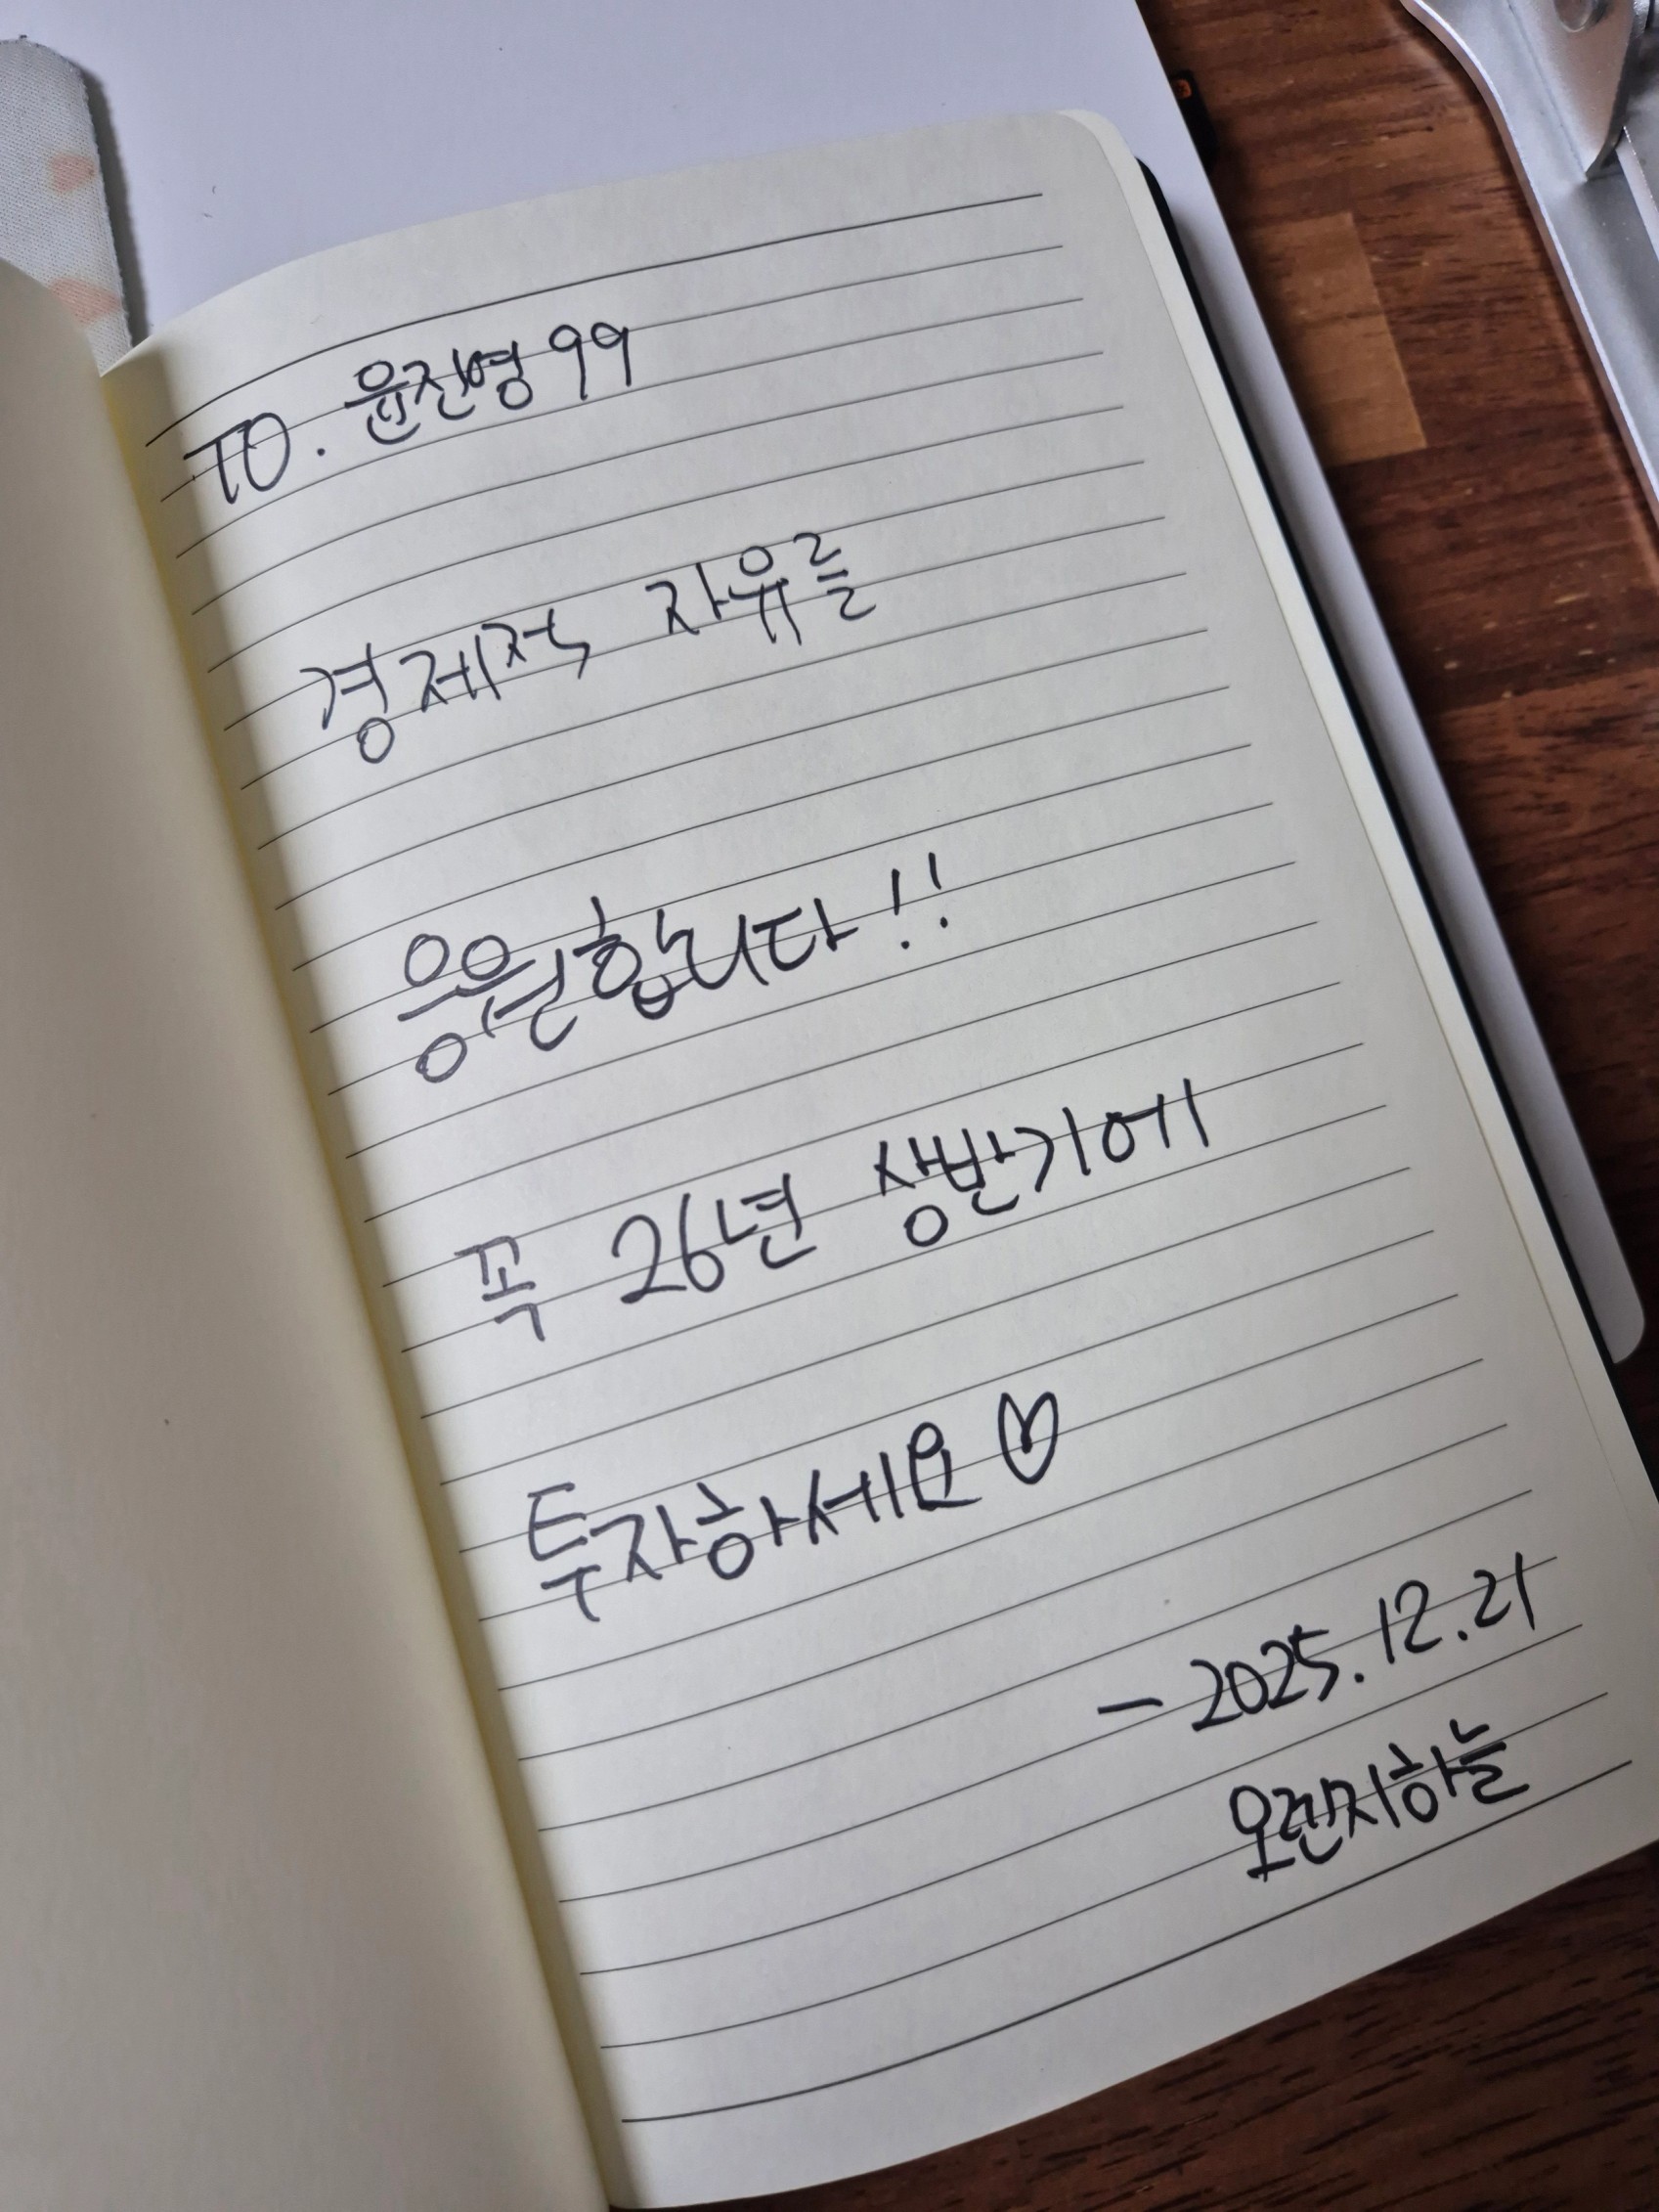 TO. 윤진영99
경제적 자유를
응원합니다!!
꼭 26년 상반기에
투자하세요♡
- 2025.12.21
오렌지하늘